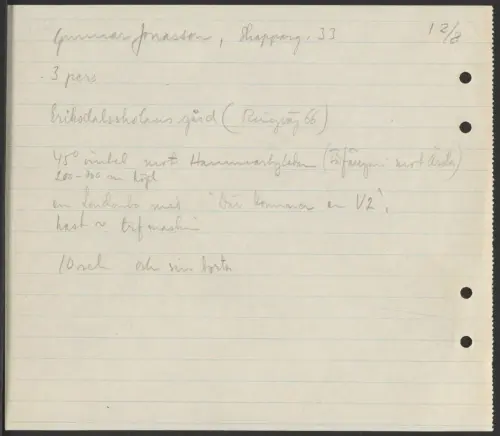 Gunnar Jonasson, Skepparg. 33 12/8
3 pers
Eriksdalsskolans gård (Ringväg 66)
45° vinkel mot Hammarbyleden ( mot
200-300 m höjd
en med "Där kommer en V2",
hast ≈
10 sek och sen borta